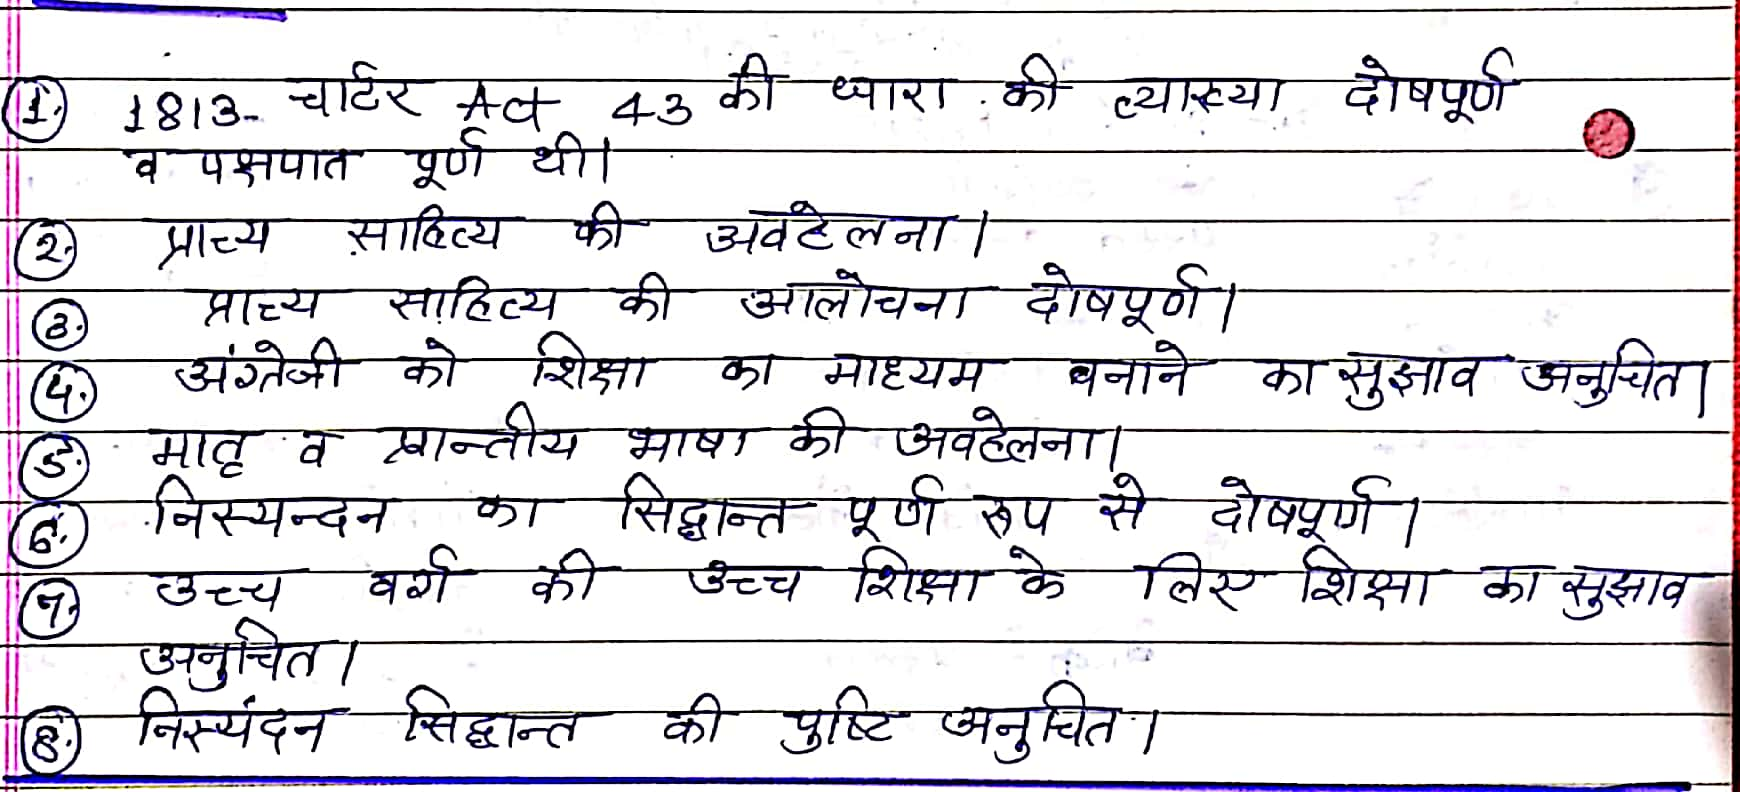 1. 1813- चार्टर Act 43 की ध्वारा की व्याख्या दोषपूर्ण
व पक्षपात पूर्ण थी।
2. प्राच्य साहित्य की अवहेलना।
3. प्राच्य साहित्य की आलोचना दोषपूर्ण।
4. अंग्रेजी को शिक्षा का माध्यम बनाने का सुझाव अनुचित।
5. मातृ व प्रान्तीय भाषा की अवहेलना।
6. निस्यन्दन का सिद्धान्त पूर्ण रूप से दोषपूर्ण।
7. उच्च वर्ग की उच्च शिक्षा के लिए शिक्षा का सुझाव
अनुचित।
8. निस्यंदन सिद्धान्त की पुष्टि अनुचित।